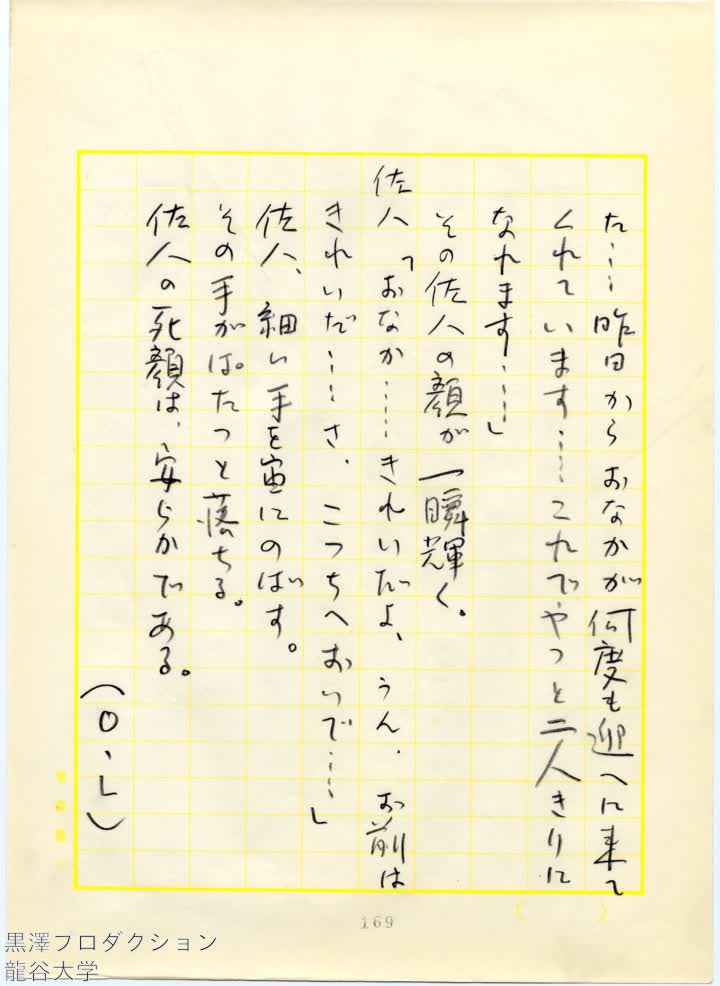 た……昨日からおなかが何度も迎へに来て
くれています……これでやっと二人きりに
なれます……」
その佐八の顔が一瞬輝く。
佐八「おなか……きれいだよ、うん、お前は
きれいだ……さ、こっちへおいで……」
佐八、細い手を宙にのばす。
その手がぱたっと落ちる。
佐八の死顔は、安らかである。
（O・L）
169
黒澤プロダクション
龍谷大学